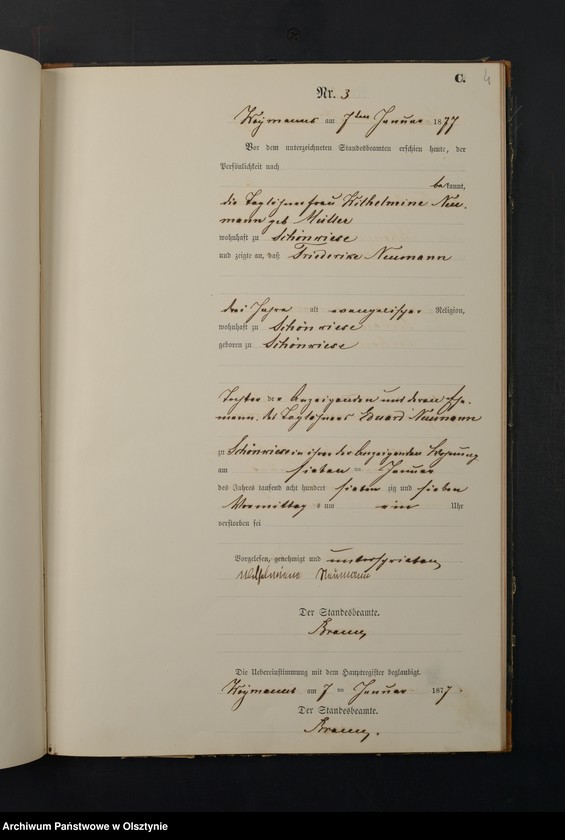 C.
4
Nr. 3
am 7ten Januar 1877
Vor dem unterzeichneten Standesbeamten erschien heute, der
Persönlichkeit nach
bekannt,
die Taglöhnerfrau Wilhelmine Neu-
mann geb Müller
wohnhaft zu Schönwiese
und zeigte an, daß Friederike Neumann
drei Jahre alt evangelischer Religion,
wohnhaft zu Schönwiese
geboren zu Schönwiese
Tochter der Anzeigenden und deren Ehe-
mann, des Taglöhners Eduard Neumann
zu Schönwiese in ihrer der Anzeigenden Wohnung
am sieben ten Januar
des Jahres tausend acht hundert sieben zig und sieben
Vormittag s um ein Uhr
verstorben sei
Vorgelesen, genehmigt und unterschrieben
Wilhelmine Neumann
Der Standesbeamte.
Die Uebereinstimmung mit dem Hauptregister beglaubigt.
am 7 ten Januar 1877.
Der Standesbeamte.
Archiwum Państwowe w Olsztynie